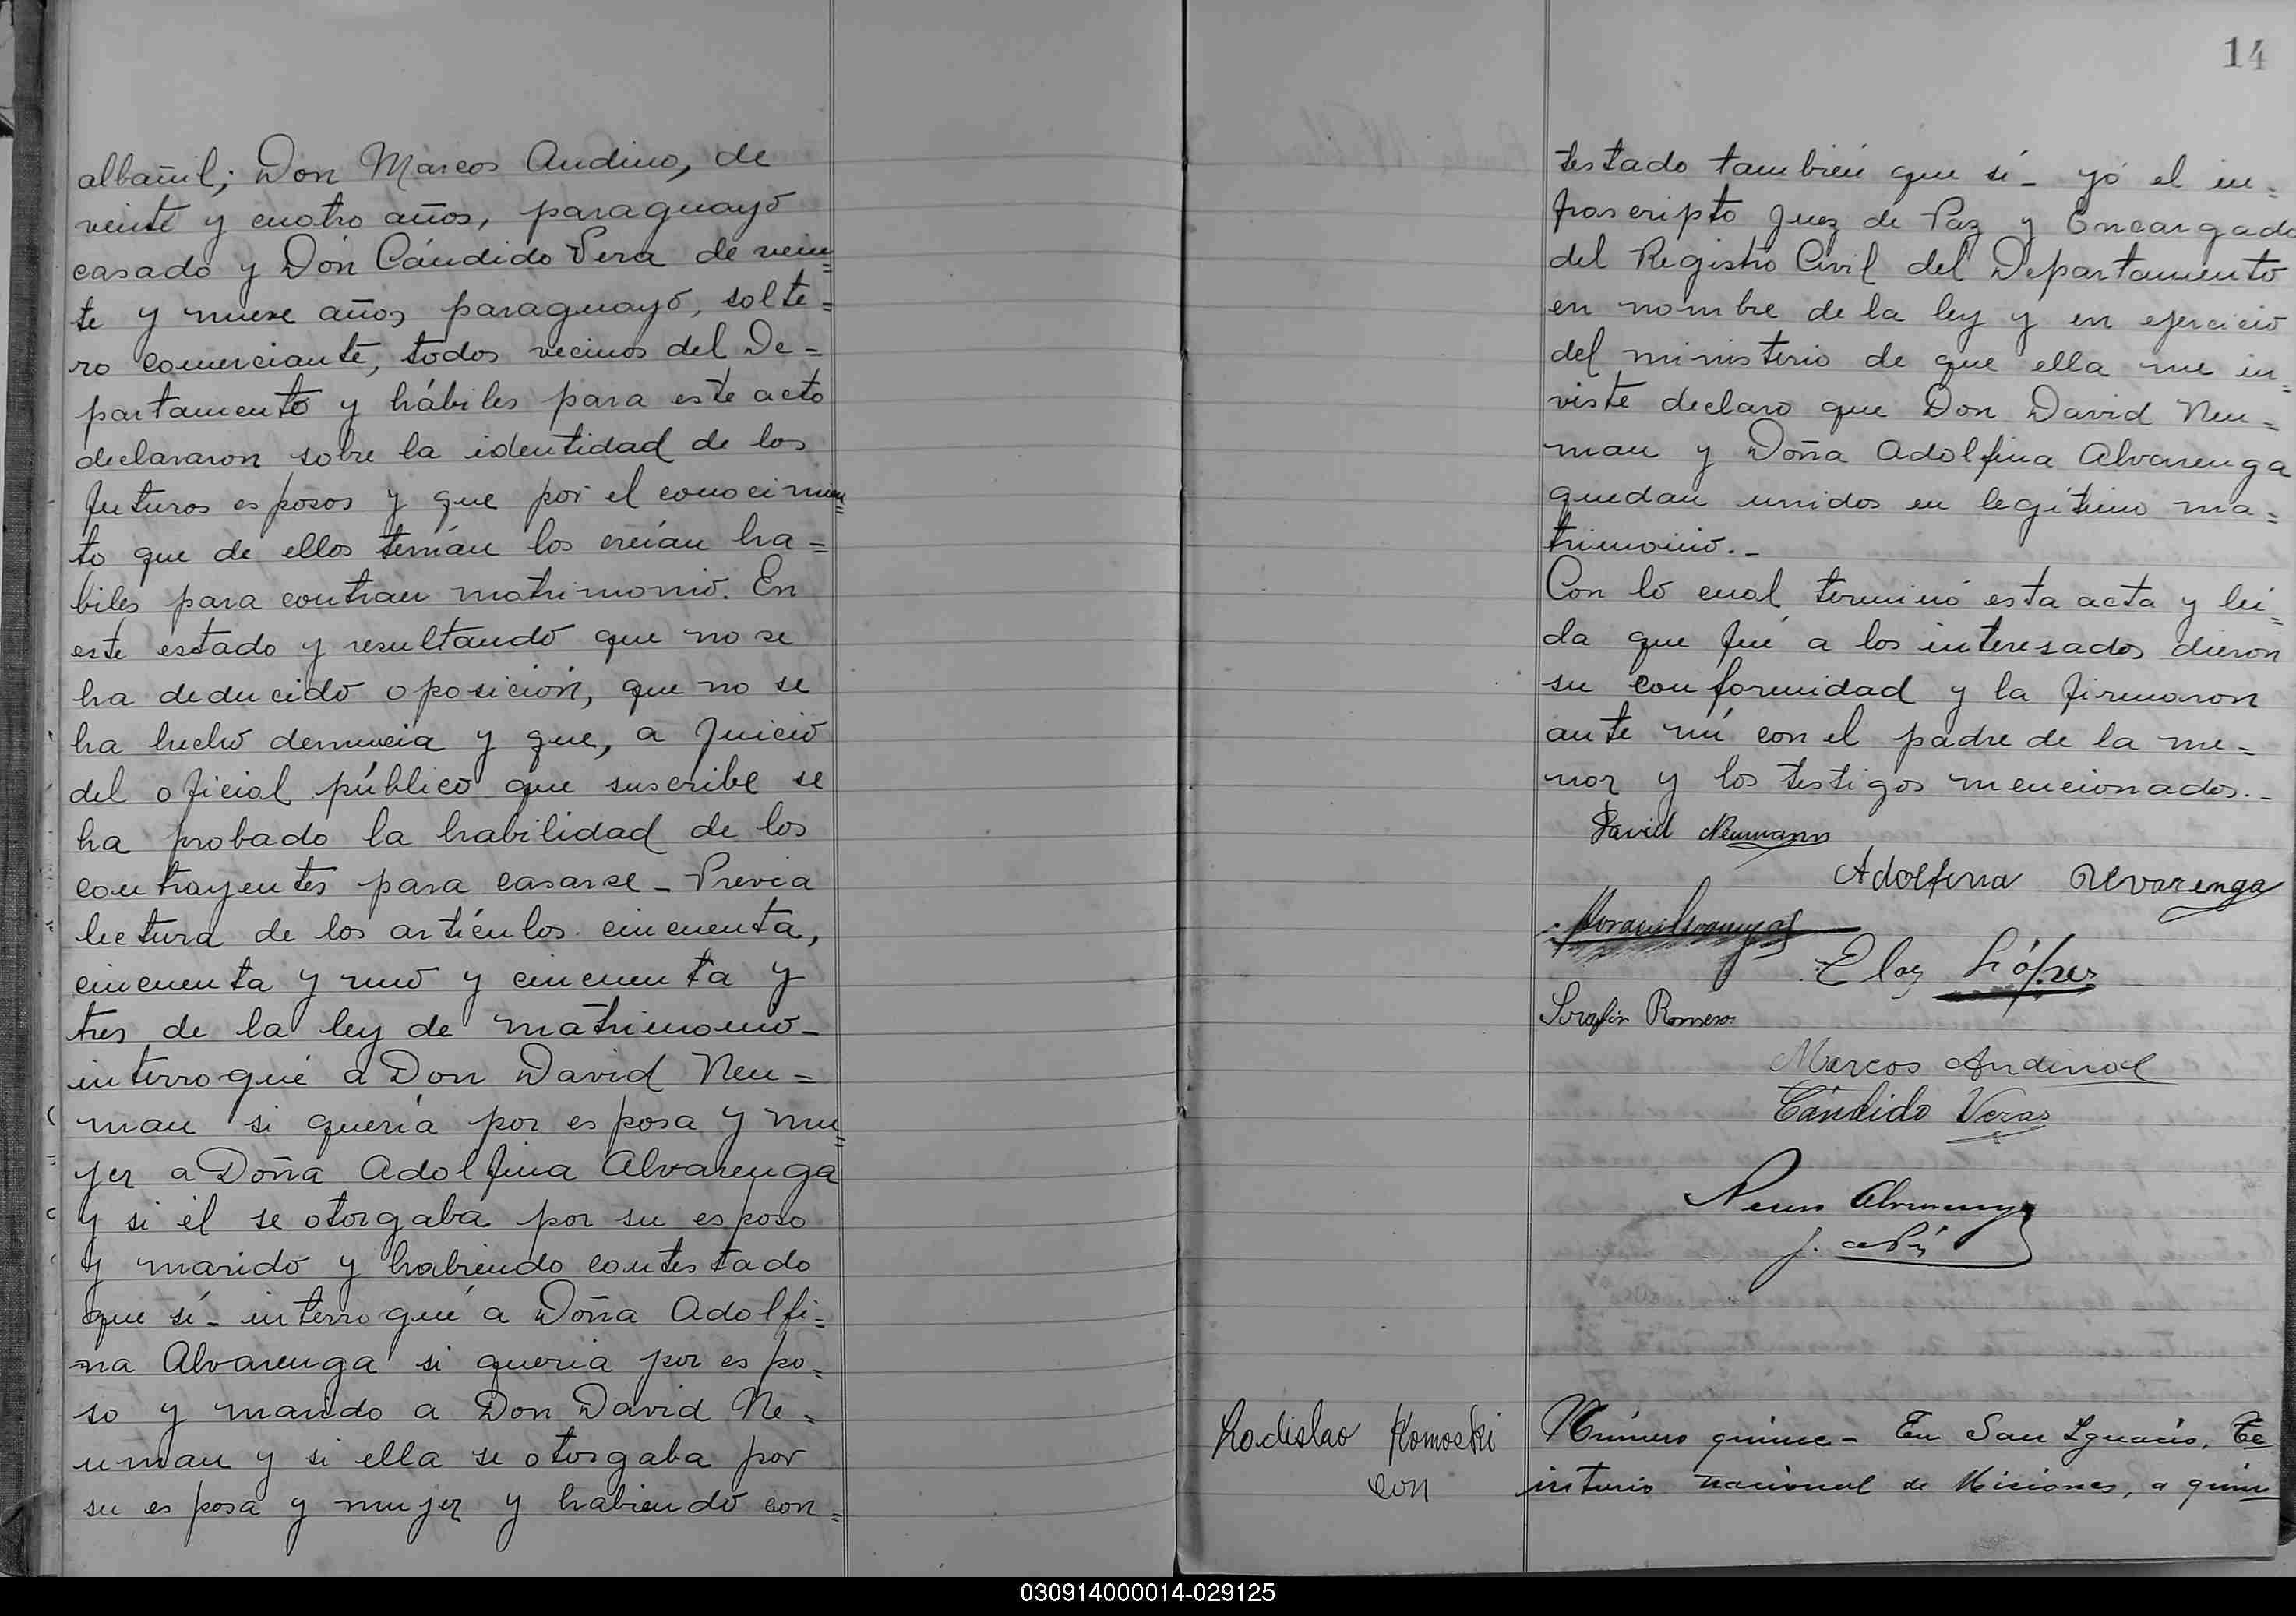 albañil; Don Marcos Andino, de
veinte y cuatro años, paraguayo
casado y Don Cándido Vera de vein=
te y nueve años paraguayo, solte=
ro comerciante, todos vecinos del De=
partamento y hábiles para este acto
declararon sobre la identidad de los
futuros esposos y que por el conocimien=
to que de ellos tenían los creían ha=
biles para contraer matrimonio. En
este estado y resultando que no se
ha deducido oposición, que no se
ha hecho denuncia y que, a juicio
del oficial público que suscribe se
ha probado la habilidad de los
contrayentes para casarse_ Previa
lectura de los artículos cincuenta,
cincuenta y uno y cincuenta y
tres de la ley de matrimonio_
interrogué a Don David Neu=
man si quería por esposa y mu=
jer a Doña Adolfina Alvarenga
y si él se otorgaba por su esposo
y marido y habiendo contestado
que sí_ interrogué a Doña Adolfi=
na Alvarenga si quería por espo=
so y marido a Don David Ne=
uman y si ella se otorgaba por
su esposa y mujer y habiendo con=
14
testado también que sí_ yo el in=
frascripto Juez de Paz y Encargado
del Registro Civil del Departamento
en nombre de la ley y en ejercicio
del ministerio de que ella me in=
viste declaro que Don David Neu=
man y Doña Adolfina Alvarenga
quedan unidos en legítimo ma=
trimonio._
Con lo cual terminó esta acta y leí=
da que fué a los interesados dieron
su conformidad y la firmaron
ante mí con el padre de la me=
nor y los testigos mencionados._
David Neumann
Adolfina Alvarenga
Eloy López
Serafín Romero
Marcos Andino
Cándido Veras
Alvarenga
J. de Pz
Ladislao Komoski
con
Número quince_ En San Ignacio, Te
rritorio nacional de Misiones, a quin
030914000014-029125